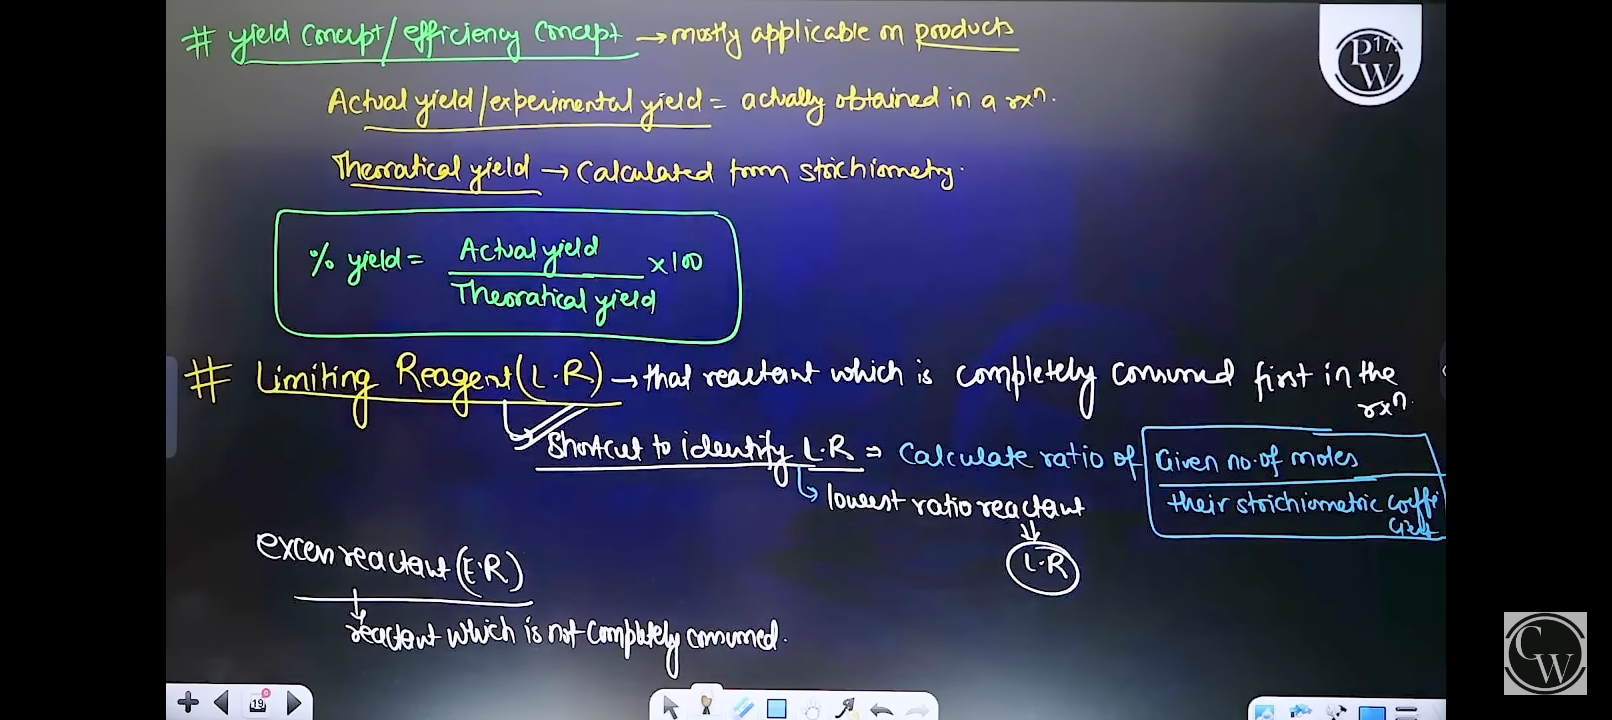 # yield concept/efficiency concept → mostly applicable on products
P 17 W
Actual yield/experimental yield = actually obtained in a rxⁿ.
Theoratical yield → Calculated from stoichiometry.
% yield = Actual yield / Theoratical yield ×100
# Limiting Reagent (L.R) → that reactant which is completely consumed first in the rxⁿ.
Shortcut to identify L.R = Calculate ratio of Given no. of moles / their stoichiometric coefficient
↳ lowest ratio reactant
↓
L.R
excess reactant (E.R)
↓
reactant which is not completely consumed.
GW
19